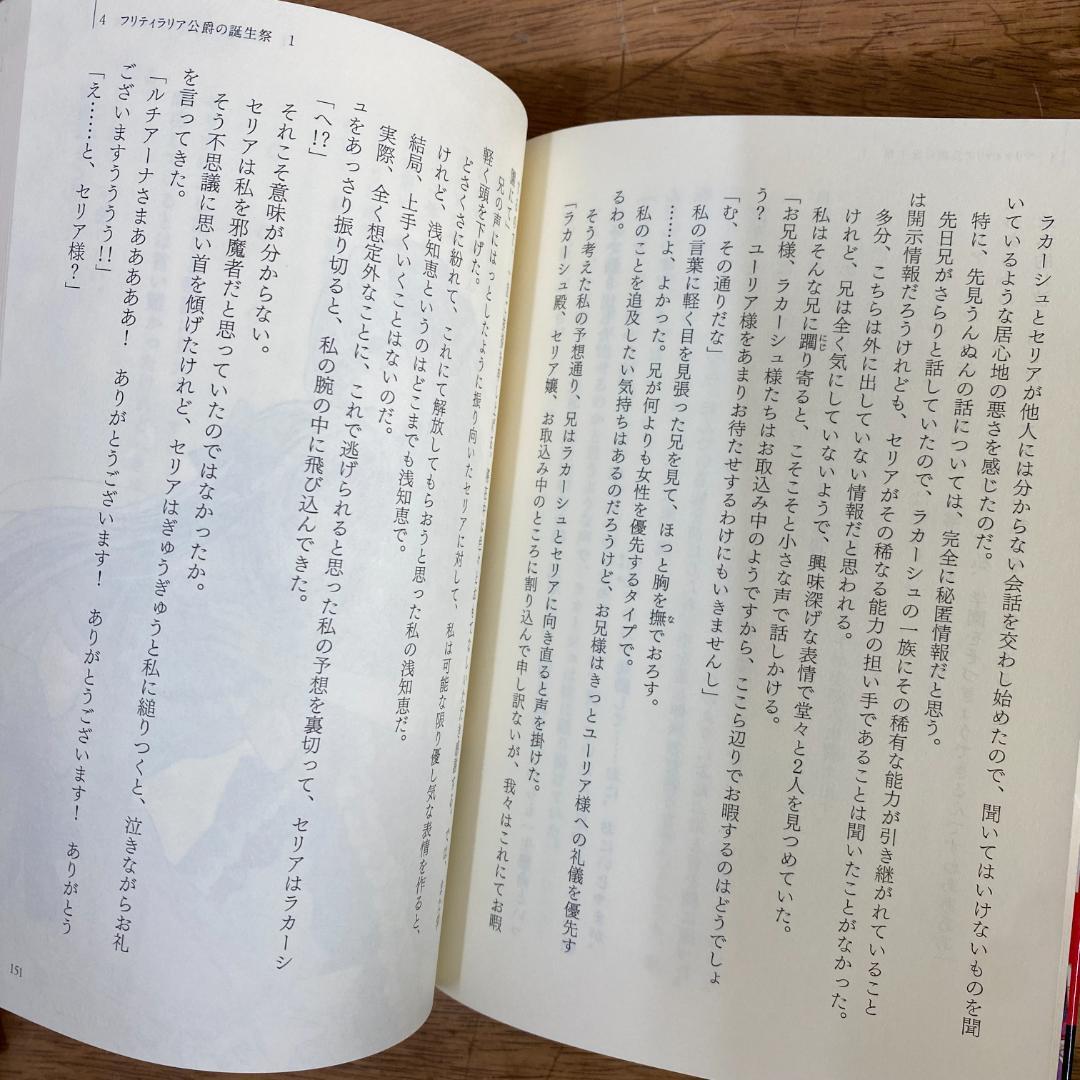 ラカーシュとセリアが他人には分からない会話を交わし始めたので、聞いてはいけないものを聞
いているような居心地の悪さを感じたのだ。
特に、先見うんぬんの話については、完全に秘匿情報だと思う。
先日兄がさらりと話していたので、ラカーシュの一族にその稀有な能力が引き継がれていること
は開示情報だろうけれども、セリアがその稀なる能力の担い手であることは聞いたことがなかった。
多分、こちらは外に出していない情報だと思われる。
けれど、兄は全く気にしていないようで、興味深げな表情で堂々と2人を見つめていた。
私はそんな兄に躙り寄ると、こそこそと小さな声で話しかける。
にじ
「お兄様、ラカーシュ様たちはお取込み中のようですから、ここら辺りでお暇するのはどうでしょ
う? ユーリア様をあまりお待たせするわけにもいきませんし」
「む、その通りだな」
私の言葉に軽く目を見張った兄を見て、ほっと胸を撫でおろす。
な
……よ、よかった。兄が何よりも女性を優先するタイプで。
私のことを追及したい気持ちはあるのだろうけど、お兄様はきっとユーリア様への礼儀を優先す
るわ。
そう考えた私の予想通り、兄はラカーシュとセリアに向き直ると声を掛けた。
「ラカーシュ殿、セリア嬢、お取込み中のところに割り込んで申し訳ないが、我々はこれにてお暇
4 フリティラリア公爵の誕生祭 1
兄の声にはっとしたように振り向いたセリアに対して、私は可能な限り優し気な表情を作ると、
軽く頭を下げた。
どさくさに紛れて、これにて解放してもらおうと思った私の浅知恵だ。
けれど、浅知恵というのはどこまでも浅知恵で。
結局、上手くいくことはないのだ。
実際、全く想定外なことに、これで逃げられると思った私の予想を裏切って、セリアはラカーシ
ュをあっさり振り切ると、私の腕の中に飛び込んできた。
「へ!?」
それこそ意味が分からない。
セリアは私を邪魔者だと思っていたのではなかったか。
そう不思議に思い首を傾げたけれど、セリアはぎゅうぎゅうと私に縋りつくと、泣きながらお礼
を言ってきた。
「ルチアーナさまぁああああ! ありがとうございます! ありがとうございます! ありがとう
ございますうううう!!」
「え……と、セリア様?」
151